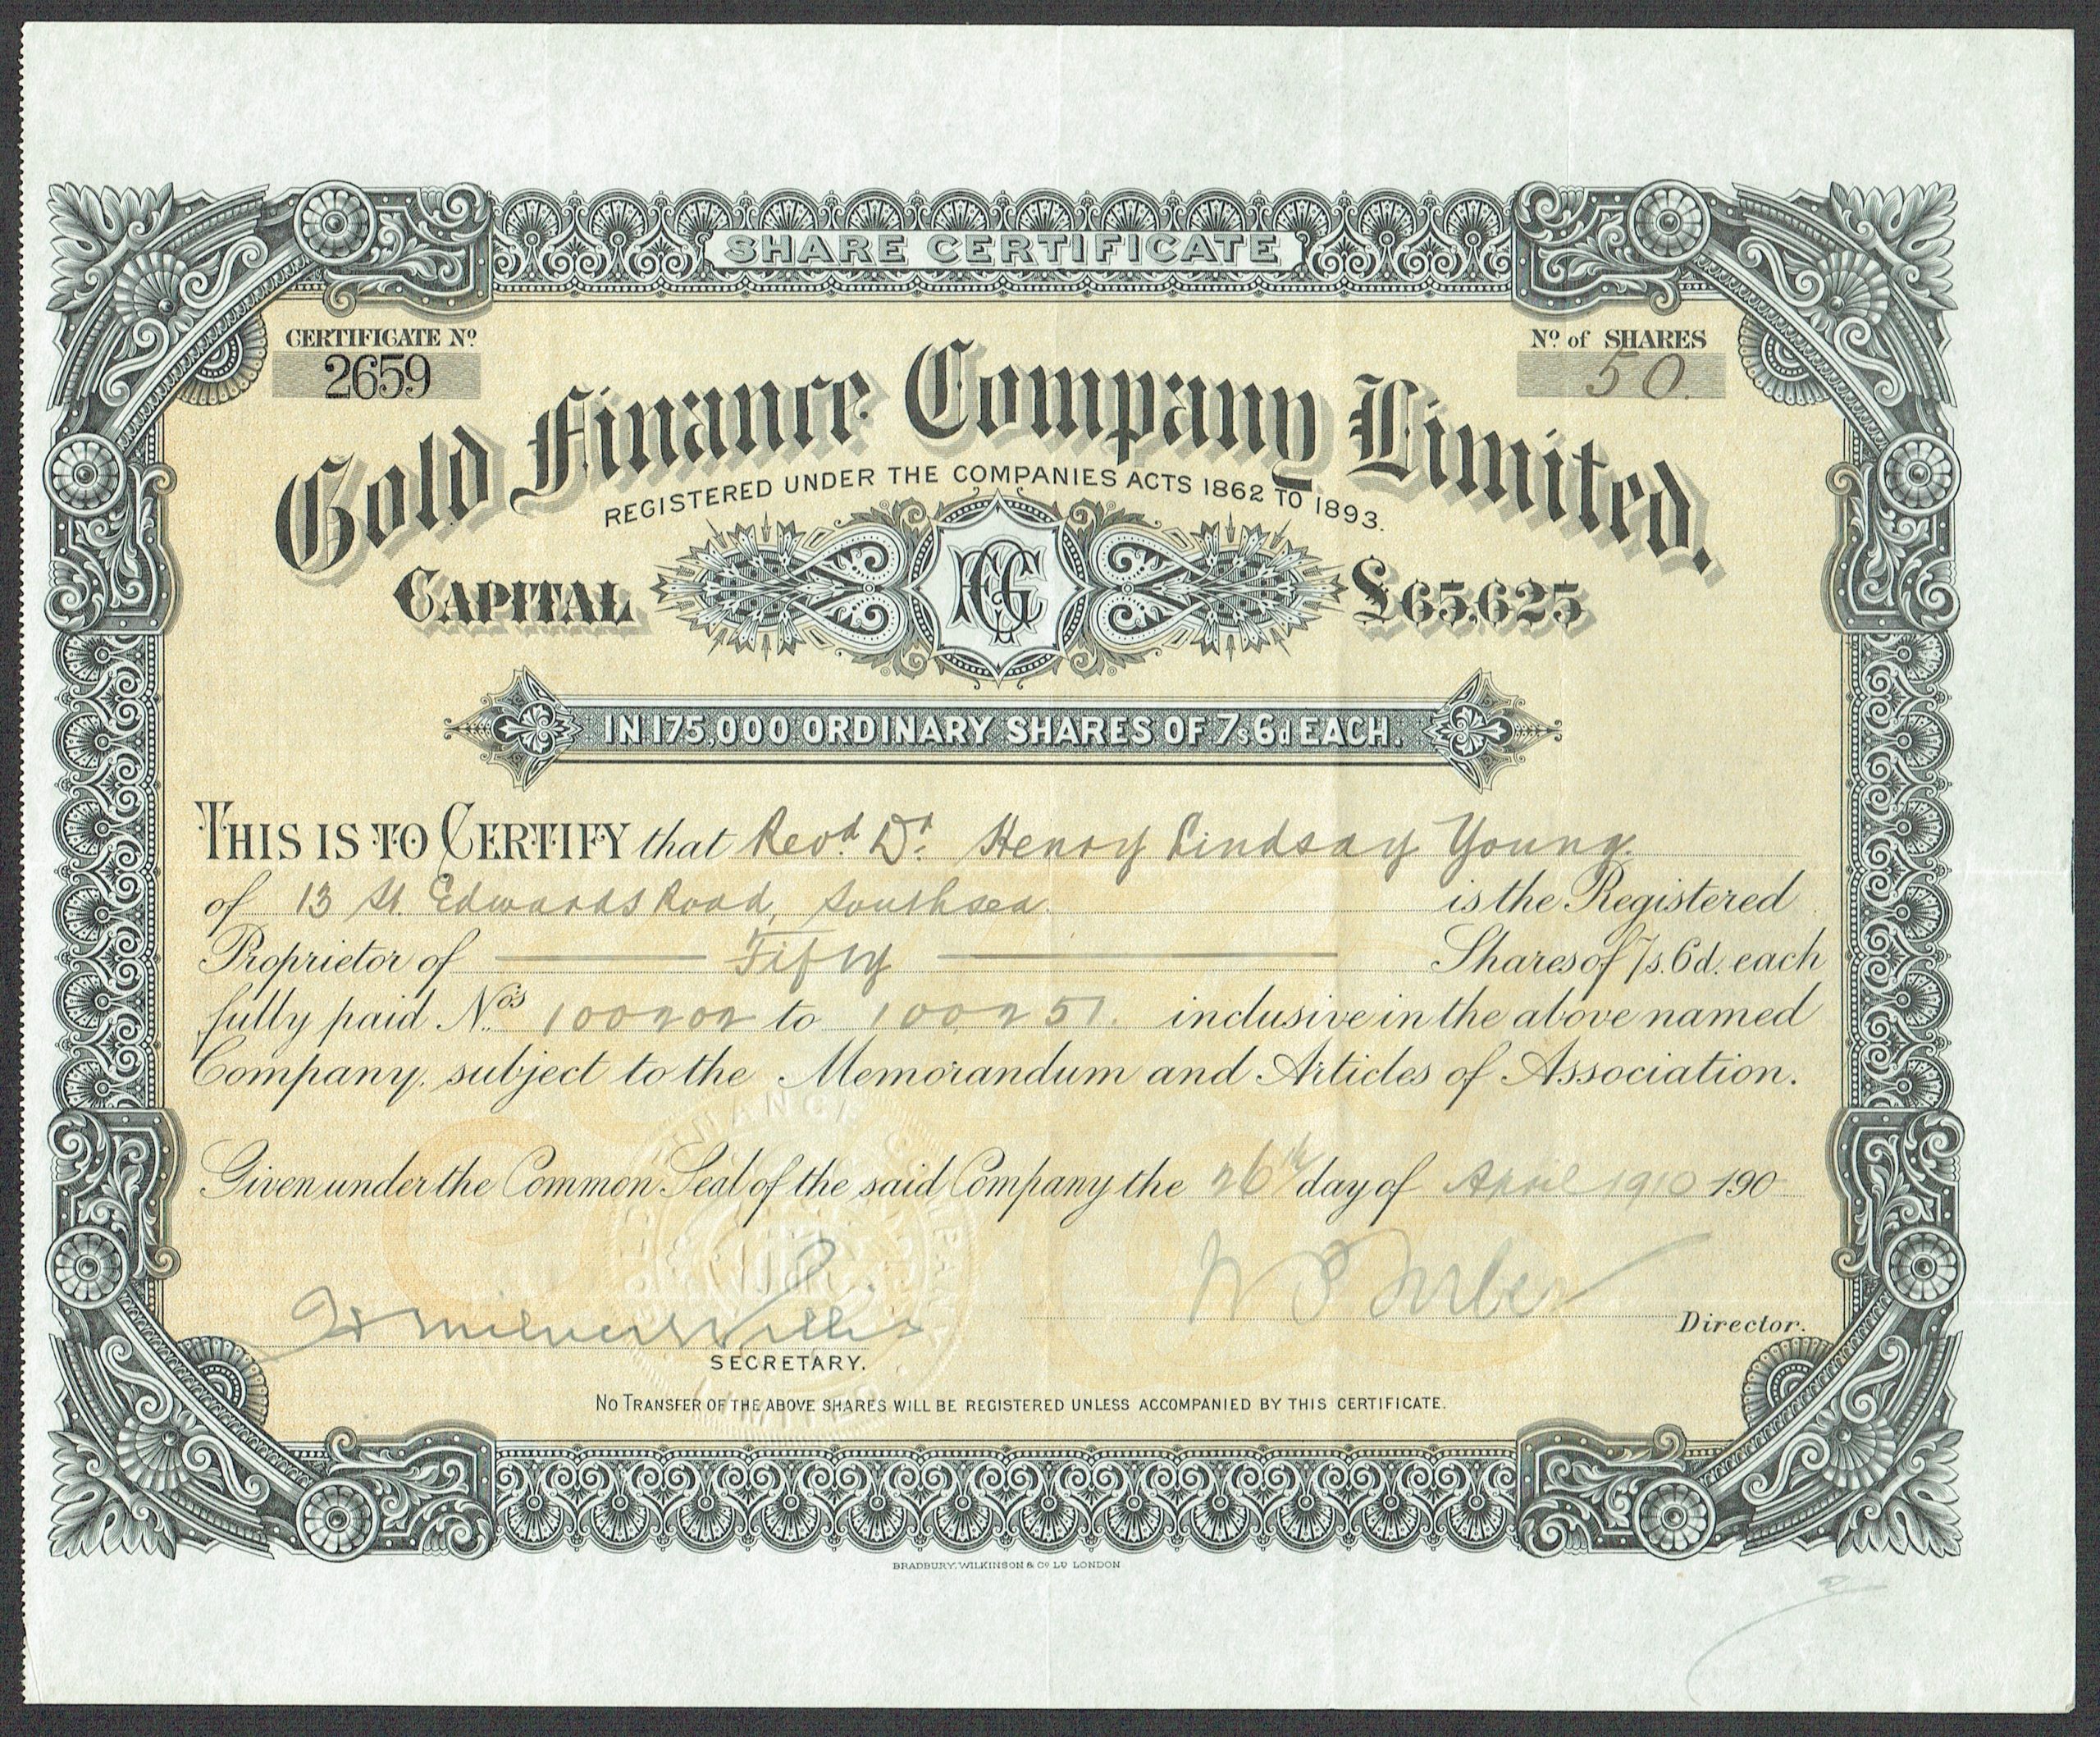 SHARE CERTIFICATE
CERTIFICATE Nº
2659
Nº of SHARES
50.
Gold Finance Company Limited.
REGISTERED UNDER THE COMPANIES ACTS 1862 TO 1893.
CAPITAL £65,625
IN 175,000 ORDINARY SHARES OF 7s6d EACH.
THIS IS TO CERTIFY that Revd. Dr. Henry Lindsay Young.
of 13 St. Edwards Road, Southsea. is the Registered
Proprietor of Fifty Shares of 7s.6d. each
fully paid Nos. 100202 to 100251. inclusive in the above named
Company, subject to the Memorandum and Articles of Association.
Given under the Common Seal of the said Company the 26th day of April 1910 190
Director.
SECRETARY.
NO TRANSFER OF THE ABOVE SHARES WILL BE REGISTERED UNLESS ACCOMPANIED BY THIS CERTIFICATE.
BRADBURY, WILKINSON & Cº Lᴰ LONDON